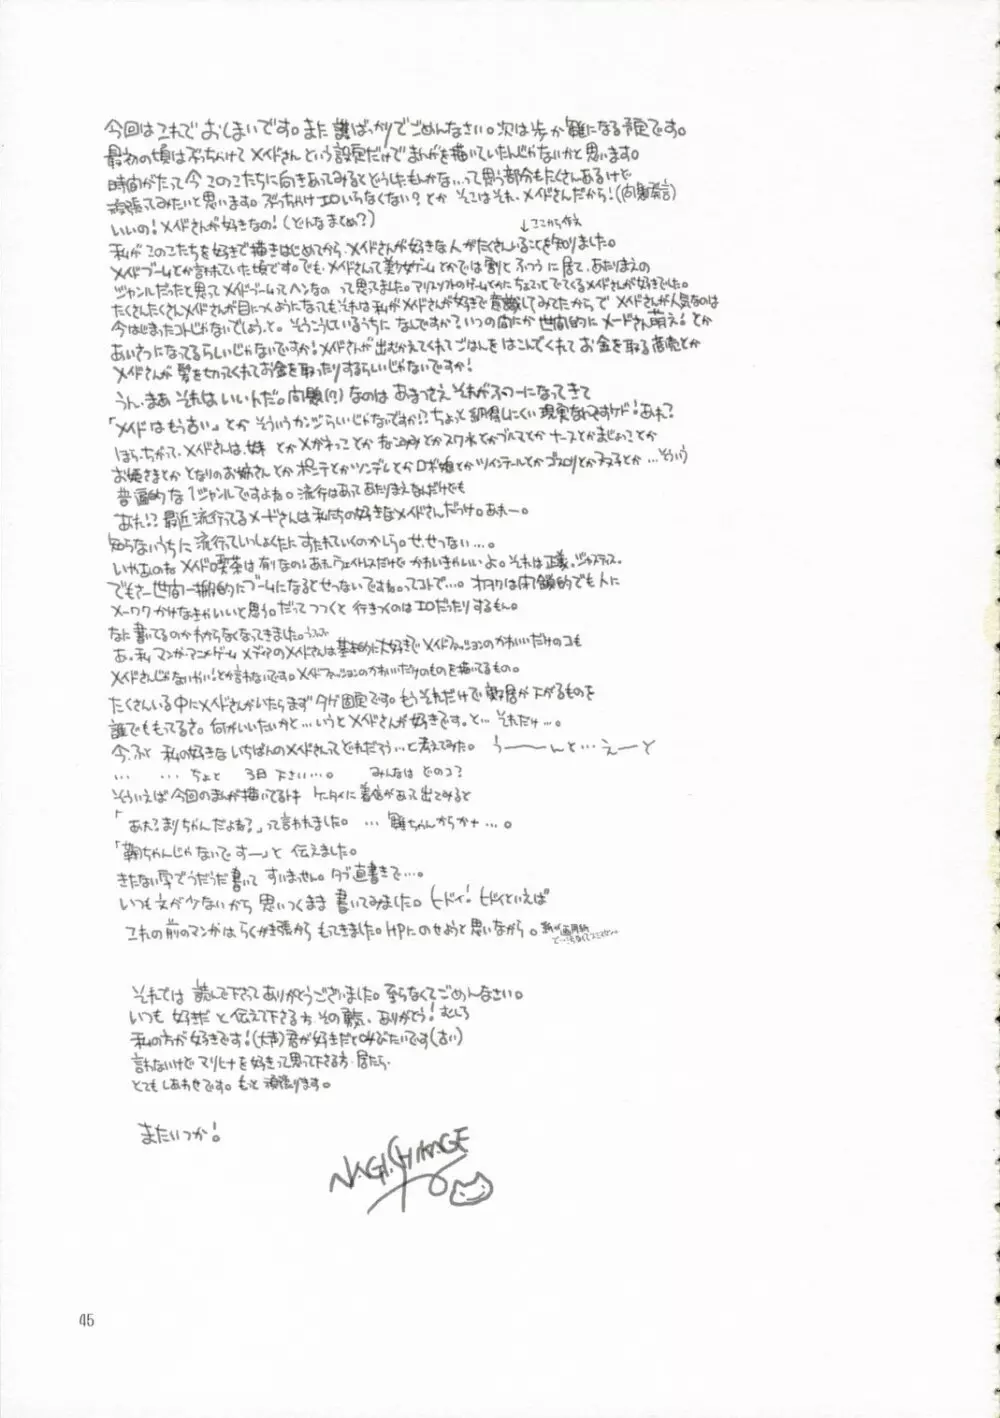 今回はこれでおしまいです。また誰ばっかりでごめんなさい。次は歩か雛になる予定です。
最初の頃はぶっちゃけてメイドさんという設定だけでまんがを描いていたんじゃないかと思います。
時間がたって今このこたちに向きあってみるとどうしたもんかな…って思う部分もたくさんあるけど
頑張ってみたいと思います。ぶっちゃけエロいらなくない?とか そこはそれ、メイドさんだから!(問題発言)
いいの!メイドさんが好きなの!(どんなまとめ?)
↓ここから作文
私がこのこたちを好きで描きはじめてから、メイドさんが好きな人がたくさんいることを知りました。
メイドブームとか言われていた頃です。でも、メイドさんて美少女ゲームとかでは割とふつうに居て、あたりまえの
ジャンルだったと思ってメイドブームってヘンなのって思ってました。アリスソフトのゲームとかにちょこっとでてくるメイドさんが好きでした。
たくさんたくさんメイドさんが目につくようになっても、それは私がメイドさんが好きで意識してみてたからで メイドさんが人気なのは
今はじまったコトじゃないでしょうと。そうこうしているうちに なんですか?いつの間にか世間的にメードさん萌え!とか
あいさつになってるらしいじゃないですか!メイドさんが出むかえてくれてごはんをはこんでくれてお金を取る商売とか
メイドさんが髪を切ってくれてお金を取ったりするらしいじゃないですか!
うん、まあ それはいいんだ。問題(?)なのは あまつさえ それがふつーになってきて
「メイドはもう古い」とか そういうカンジらしいじゃないですか!?ちょっと納得しにくい現実なんですケド!あれ?
ほら、ちがって、メイドさんは、妹 とかメガネっことか ねこみみとかスク水とかブルマとか ナースとかまじょっことか
お姫さまとか となりのお姉さんとか ポニテとかツンデレとか ロボ娘とかツインテールとかゴスロリとか とか…そういう
普遍的な1ジャンルですよね。流行はあってあたりまえなんだけども
あれ!?最近流行ってるメードさんは私たちの好きなメイドさんだっけ。あれー。
知らないうちに流行っていっしょくたにすたれていくのかしら。せ、せつない…。
いやあのね メイド喫茶は有りなの!あれウェイトレスだけでかわいきゃいいよ。それは正義。ジャスティス。
でもさー世間一般的にブームになるとせつないですね。ってコトで…。オタクは閉鎖的でも人に
メーワクかけなきゃいいと思う。だってつづくと行きつくのはエロだったりするもん。
なに書いてるのかわからなくなってきました。うふふ
あ。私 マンガ・アニメゲームメディアのメイドさんは基本的に大好きでメイドファッションのかわいいだけのコも
メイドさんじゃないやい!とか言わないです。メイドファッションのかわいいだけのものを描いてるもの。
たくさんいる中にメイドさんがいたらまず タゲ固定です。もうそれだけで敷居が下がるものを
誰でももってるさ。何がいいたいかと…いうとメイドさんが好きです。と…それだけ…。
今、ふと 私の好きな いちばんのメイドさんってどれだろう…と考えてみた。 うーーーんと…えーと
… … ちょと 3日 下さい…。 みんなは どのコ?
そういえば今回のまんが描いてるトキ ケータイに着信があって出てみると
「あれ?まりちゃんだよね?」って言われました。…雛ちゃんからか+…。
「鞠ちゃんじゃないですー」と 伝えました。
きたない字でうだうだ書いて すいません。タブ直書きで…。
いつも文が少ないから 思いつくまま 書いてみました。ヒドイ!ヒドイといえば
これの前のマンガは らくがき張から もってきました。HPにのせようと思いながら。
それでは 読んで下さってありがとうございました。至らなくてごめんなさい。
いつも 好きだ と伝えて下さる方、その勇気、ありがとう!むしろ
私の方が好きです!(大声)君が好きだと叫びたいです(古い)
言わないけどマリヒナを好きって思って下さる方、居たら、
とてもしあわせです。もっと頑張ります。
またいつか!
NAGI.CHIKAGE
45